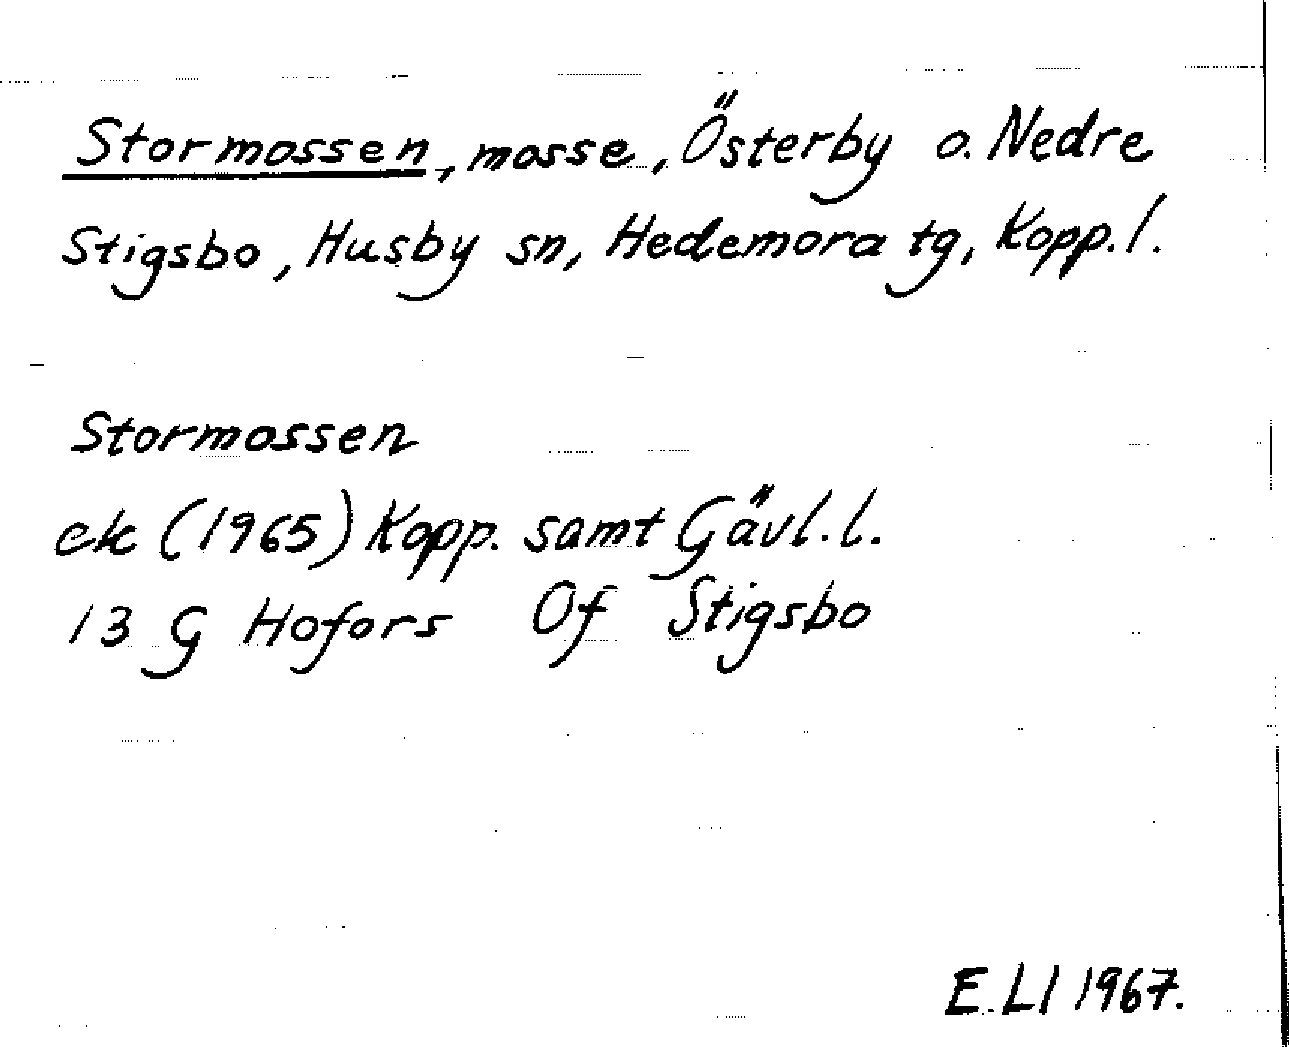 Stormossen, mosse, Österby o. Nedre
Stigsbo, Husby sn, Hedemora tg, Kopp. l.
Stormossen
ek (1965) Kopp. samt Gävl. l.
13 G Hofors Of Stigsbo
E. Ll 1967.